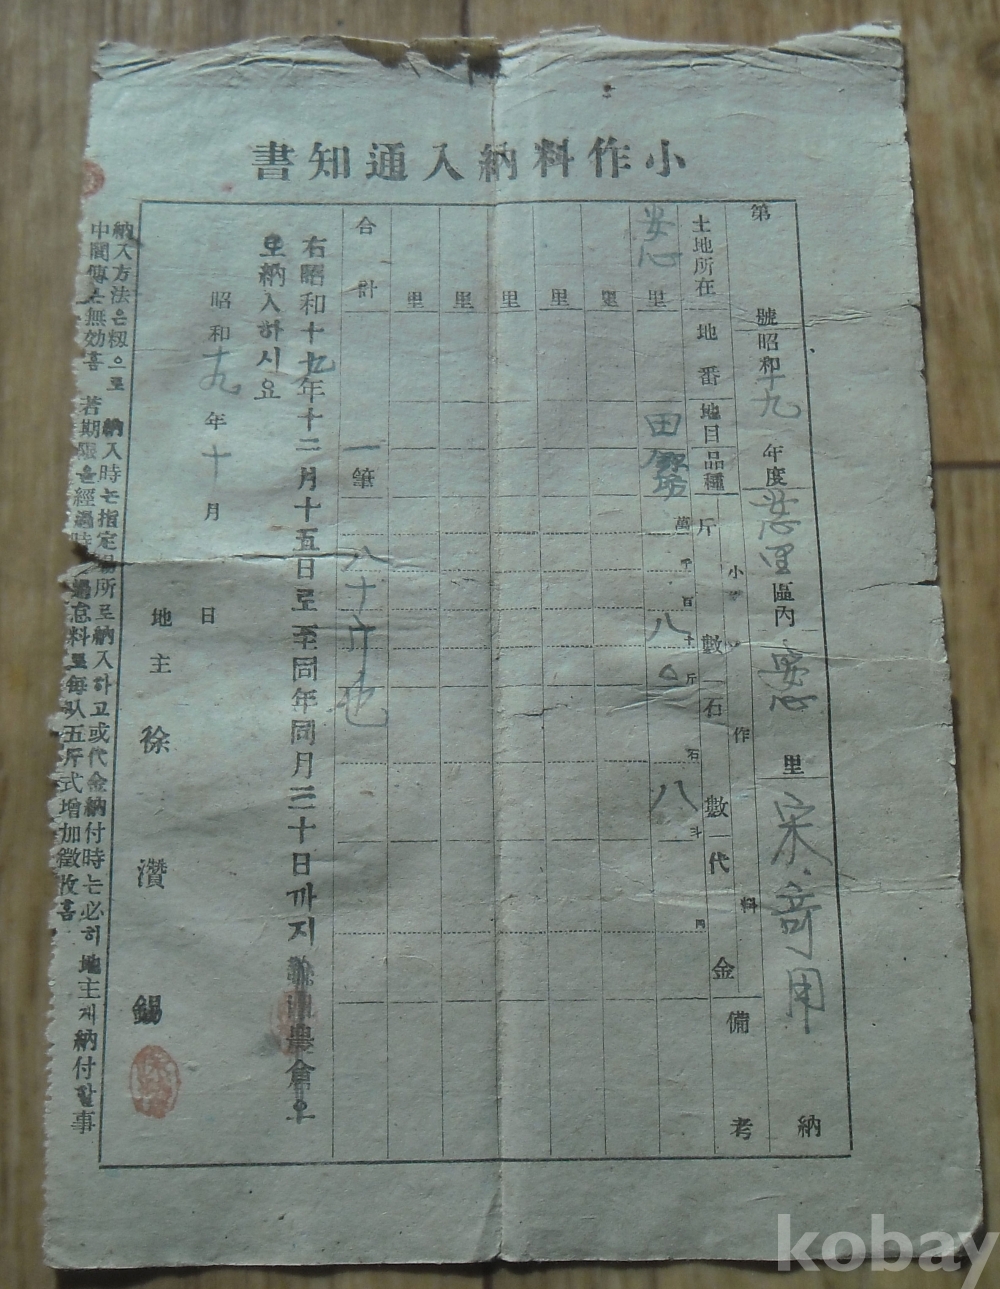 小作料納入通知書
第 號 昭和十九年度 安心里區內 安心里 宋奇用 納
土地所在 地番 地目 品種 小作料 斤數 石數 代金 備考
安心里 田 銀坊 萬 千 百 八十 〇斤 石 八斗 円
里
里
里
里
里
合計 一筆 八十斤也
右昭和十九年十二月十五日로至同年同月三十日까지 農倉으
로納入하시요
昭和十九年十月 日
地主 徐瓚錫
納入方法은籾으로 納入時는指定場所로納入하고或代金納付時는必히地主게納付할事
中間傳은無効홈 若期限을經過時 過怠料로每叺五斤式增加徵收홈
kobay